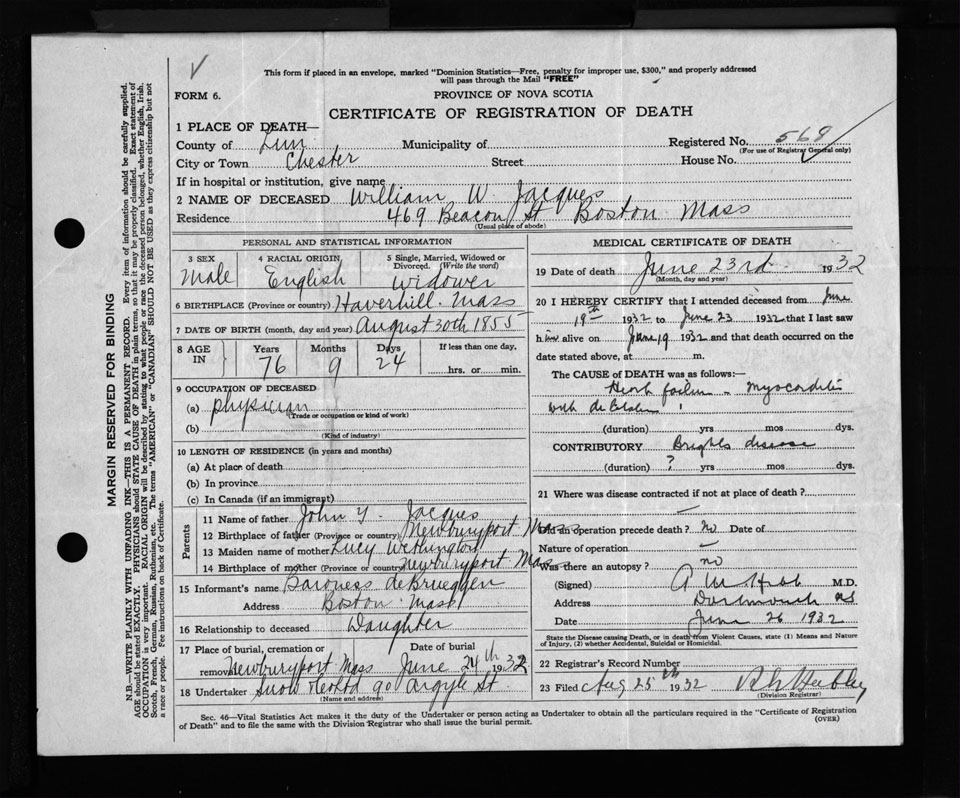 This form if placed in an envelope, marked "Dominion Statistics—Free, penalty for improper use, $300," and properly addressed
will pass through the Mail "FREE"
FORM 6.
PROVINCE OF NOVA SCOTIA
CERTIFICATE OF REGISTRATION OF DEATH
1 PLACE OF DEATH—
County of Lun Municipality of Registered No. 568
(For use of Registrar General only)
City or Town Chester Street House No.
If in hospital or institution, give name
2 NAME OF DECEASED William W. Jacques
Residence 469 Beacon St Boston Mass
(Usual place of abode)
PERSONAL AND STATISTICAL INFORMATION
3 SEX Male
4 RACIAL ORIGIN English
5 Single, Married, Widowed or Divorced. (Write the word) Widower
6 BIRTHPLACE (Province or country) Haverhill. Mass
7 DATE OF BIRTH (month, day and year) August 30th 1855
8 AGE IN Years 76 Months 9 Days 24 If less than one day. hrs. or min.
9 OCCUPATION OF DECEASED
(a) Physician
(Trade or occupation or kind of work)
(b)
(Kind of industry)
10 LENGTH OF RESIDENCE (in years and months)
(a) At place of death
(b) In province
(c) In Canada (if an immigrant)
Parents
11 Name of father John Jacques
12 Birthplace of father (Province or country) Newburyport Mass
13 Maiden name of mother Lucy
14 Birthplace of mother (Province or country) Newburyport Mass
15 Informant's name Baroness de Brueggen
Address Boston Mass
16 Relationship to deceased Daughter
17 Place of burial, cremation or removal Newburyport Mass Date of burial June 24th 1932
18 Undertaker Snow 90 Argyle St
(Name and address)
MEDICAL CERTIFICATE OF DEATH
19 Date of death June 23rd 1932
(Month, day and year)
20 I HEREBY CERTIFY that I attended deceased from June
19th 1932 to June 23 1932 that I last saw
him alive on June 19 1932 and that death occurred on the
date stated above, at m.
The CAUSE OF DEATH was as follows:
Myocarditis
with
(duration) yrs mos dys.
CONTRIBUTORY Brights disease
(duration) ? yrs mos dys.
21 Where was disease contracted if not at place of death?
Did an operation precede death? no Date of
Nature of operation —
Was there an autopsy? no
(Signed) M.D.
Address Dartmouth NS
Date June 26 1932
State the Disease causing Death, or in death from Violent Causes, state (1) Means and Nature
of Injury, (2) whether Accidental, Suicidal or Homicidal.
22 Registrar's Record Number
23 Filed Aug 25th 1932
(Division Registrar)
Sec. 46—Vital Statistics Act makes it the duty of the Undertaker or person acting as Undertaker to obtain all the particulars required in the "Certificate of Registration
of Death" and to file the same with the Division Registrar who shall issue the burial permit.
(OVER)
MARGIN RESERVED FOR BINDING
N.B.—WRITE PLAINLY WITH UNFADING INK—THIS IS A PERMANENT RECORD. Every item of information should be carefully supplied.
AGE should be stated EXACTLY. PHYSICIANS should STATE CAUSE OF DEATH in plain terms, so that it may be properly classified. Exact statement of
OCCUPATION is very important. RACIAL ORIGIN will be described by stating to what people or race the deceased person belonged, whether English, Irish,
Scotch, French, German, Russian, Ruthenian, etc. The terms "AMERICAN" or "CANADIAN" SHOULD NOT BE USED as they express citizenship but not
a race or people. Fee instructions on back of Certificate.